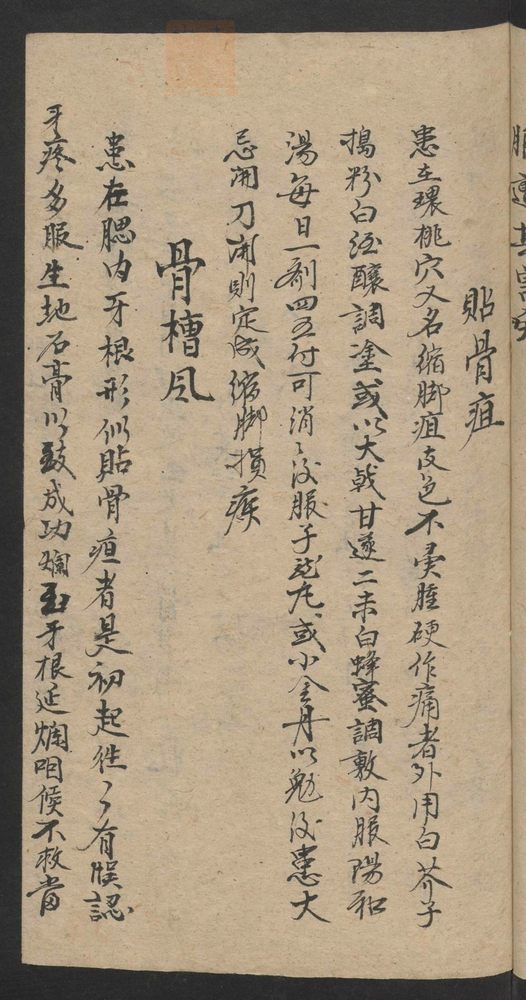 貼骨疽
患在環桃穴又名縮脚疽皮色不異腫硬作痛者外用白芥子
搗粉白酒釀調塗或以大戟甘遂二末白蜂蜜調敷內服陽和
湯每日一劑四五付可消消後服子龍丸或小金丹以免後患大
忌開刀開則定成縮脚損疾
骨槽風
患在腮內牙根形似貼骨疽者是初起往々有悮認
牙疼多服生地石膏以致成功爛至牙根延爛咽候不救當